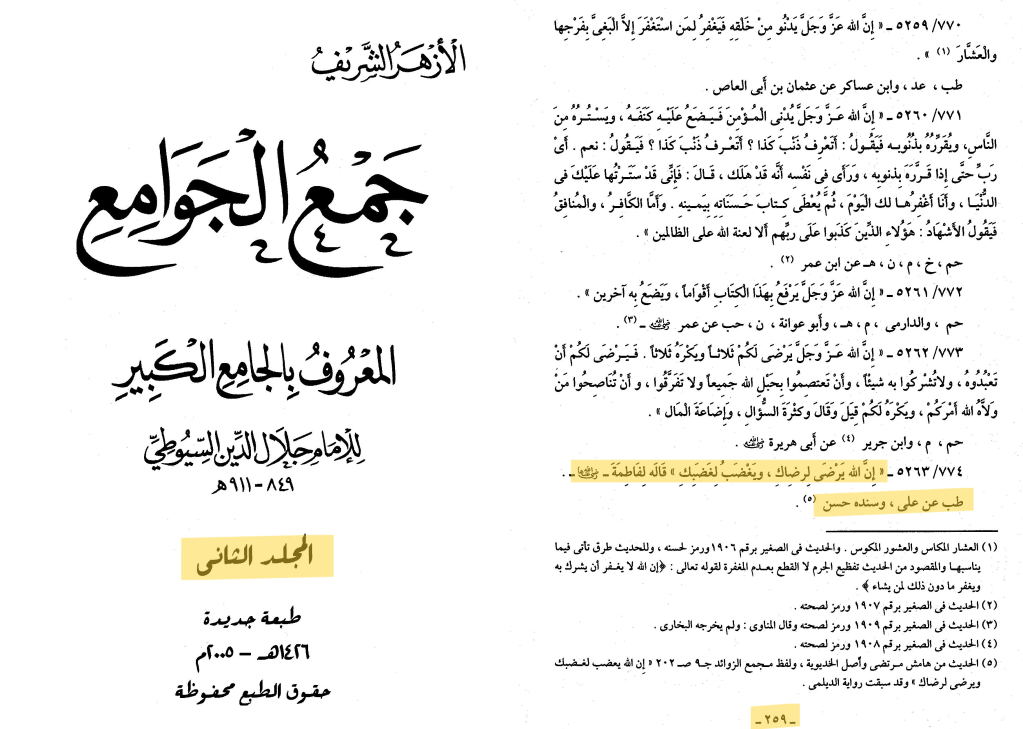 الأزهر الشريف
جَمْعُ الْجَوَامِعِ
المَعْرُوفُ بِالجَامِعِ الْكَبِيرِ
لِلإمَامِ جَلَالِ الدِّينِ السُّيُوطِيِّ
٨٤٩ - ٩١١ هـ
المجلد الثانى
طبعة جديدة
١٤٢٦هـ - ٢٠٠٥م
حقوق الطبع محفوظة
٥٢٥٩/٧٧٠ ـ « إِنَّ الله عَزَّ وَجَلَّ يَدْنُو مِنْ خَلْقِهِ فَيَغْفِرُ لِمَن اسْتَغْفَرَ إِلاَّ الْبَغِىَّ بِفَرْجِهَا
والْعَشَّارَ (١) » .
طب ، عد ، وابن عساكر عن عثمان بن أبى العاص .
٥٢٦٠/٧٧١ ـ « إِنَّ الله عَزَّ وَجَلَّ يُدْنِى الْمُؤْمِنَ فَيَضَعُ عَلَيْهِ كَنَفَهُ ، وَيَسْتُرُهُ مِنَ
النَّاسِ، وَيُقَرِّرُهُ بِذُنُوبِهِ فَيَقُولُ : أَتَعْرِفُ ذَنْبَ كَذَا ؟ أَتَعْرِفُ ذَنْبَ كَذَا ؟ فَيَقُولُ : نعم . أَىْ
رَبِّ حَتَّى إِذَا قَرَّرَهُ بِذنوبِهِ ، وَرَأَى فِى نَفْسِهِ أَنَّه قَدْ هَلَك ، قَالَ : فَإِنِّى قَدْ سَتَرْتُها عَلَيْكَ فِى
الدُّنْيَا ، وَأَنَا أَغْفِرُهَا لك الْيَوْمَ ، ثُمَّ يُعْطَى كِتابَ حَسَنَاتِهِ بِيَمينِهِ . وَأَمَّا الْكَافِرُ ، والْمُنَافِقُ
فَيَقُولُ الأَشْهَادُ : هَؤُلاءِ الذِّينَ كَذَبُوا عَلَى ربِّهِم أَلا لعنة الله على الظالمين » .
حم ، خ ، م ، ن ، هـ عن ابن عمر (٢) .
٥٢٦١/٧٧٢ ـ « إِنَّ الله عَزَّ وَجَلَّ يَرْفَعُ بِهَذَا الْكِتَابِ أَقْوَاماً ، وَيَضَعُ بِه آخرين » .
حم ، والدارمى ، م ، هـ ، وأبو عوانة ، ن ، حب عن عمر ﵁ ـ (٣) .
٥٢٦٢/٧٧٣ ـ « إِنَّ الله عَزَّ وَجَلَّ يَرْضَى لَكُمْ ثَلاثاً وَيكْرَهُ ثَلاثاً . فَيَرْضَى لَكُمْ أَنْ
تَعْبُدُوهُ ، ولاتُشْرِكُوا به شيئًا ، وأَنْ تَعتصِمُوا بِحَبْلِ الله جَمِيعاً ولا تَفَرَّقُوا ، و أَنْ تُنَاصِحُوا مَنْ
وَلاَّهُ الله أَمْرَكُمْ ، وَيكْرَهُ لَكُمْ قِيلَ وَقَالَ وكَثْرَةَ السُّؤَالِ ، وَإِضَاعَةَ الْمَالِ » .
حم ، م ، وابن جرير (٤) عن أبى هريرة ﵁ .
٥٢٦٣/٧٧٤ ـ « إِنَّ الله يَرْضَى لِرِضاكِ ، ويَغْضَبُ لِغَضَبِكِ » قَالَه لِفَاطِمَةَ ـ ﵂ ـ .
طب عن على ، وسنده حسن (٥) .
(١) العشار المكاس والعشور المكوس . والحديث فى الصغير برقم ١٩٠٦ ورمز لحسنه ، وللحديث طرق تأتى فيما
يناسبها والمقصود من الحديث تفظيع الجرم لا القطع بعدم المغفرة لقوله تعالى : ﴿إن الله لا يغفر أن يشرك به
ويغفر ما دون ذلك لمن يشاء ﴾ .
(٢) الحديث فى الصغير برقم ١٩٠٧ ورمز لصحته .
(٣) الحديث فى الصغير برقم ١٩٠٩ ورمز لصحته وقال المناوى : ولم يخرجه البخارى .
(٤) الحديث فى الصغير برقم ١٩٠٨ ورمز لصحته .
(٥) الحديث من هامش مرتضى وأصل الخديوية ، ولفظ مجمع الزوائد جـ٩ صـ ٢٠٢ « إن الله يغضب لغضبك
ويرضى لرضاك » وقد سبقت رواية الديلمى .
ـ ٢٥٩ ـ